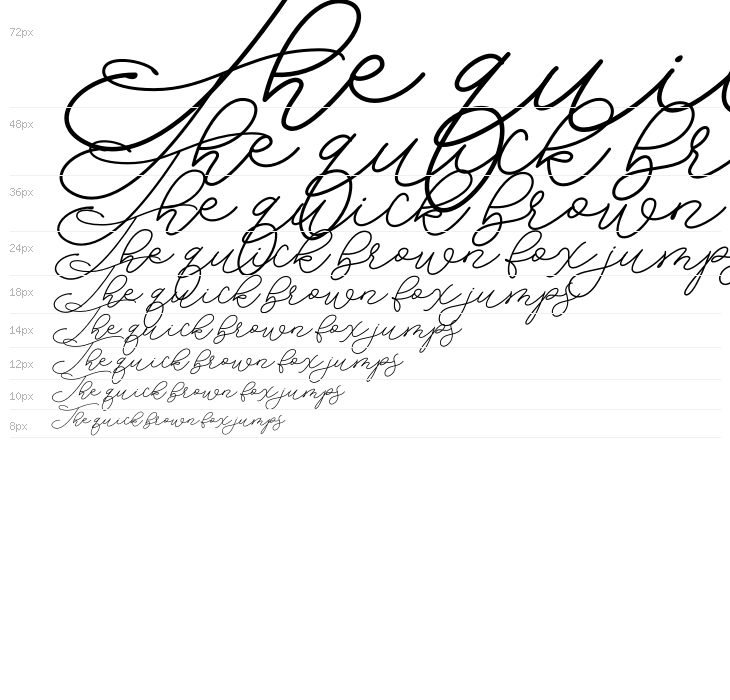 72px The qui
48px The quick br
36px The quick brown
24px The quick brown fox jumps
18px The quick brown fox jumps
14px The quick brown fox jumps
12px The quick brown fox jumps
10px The quick brown fox jumps
8px The quick brown fox jumps